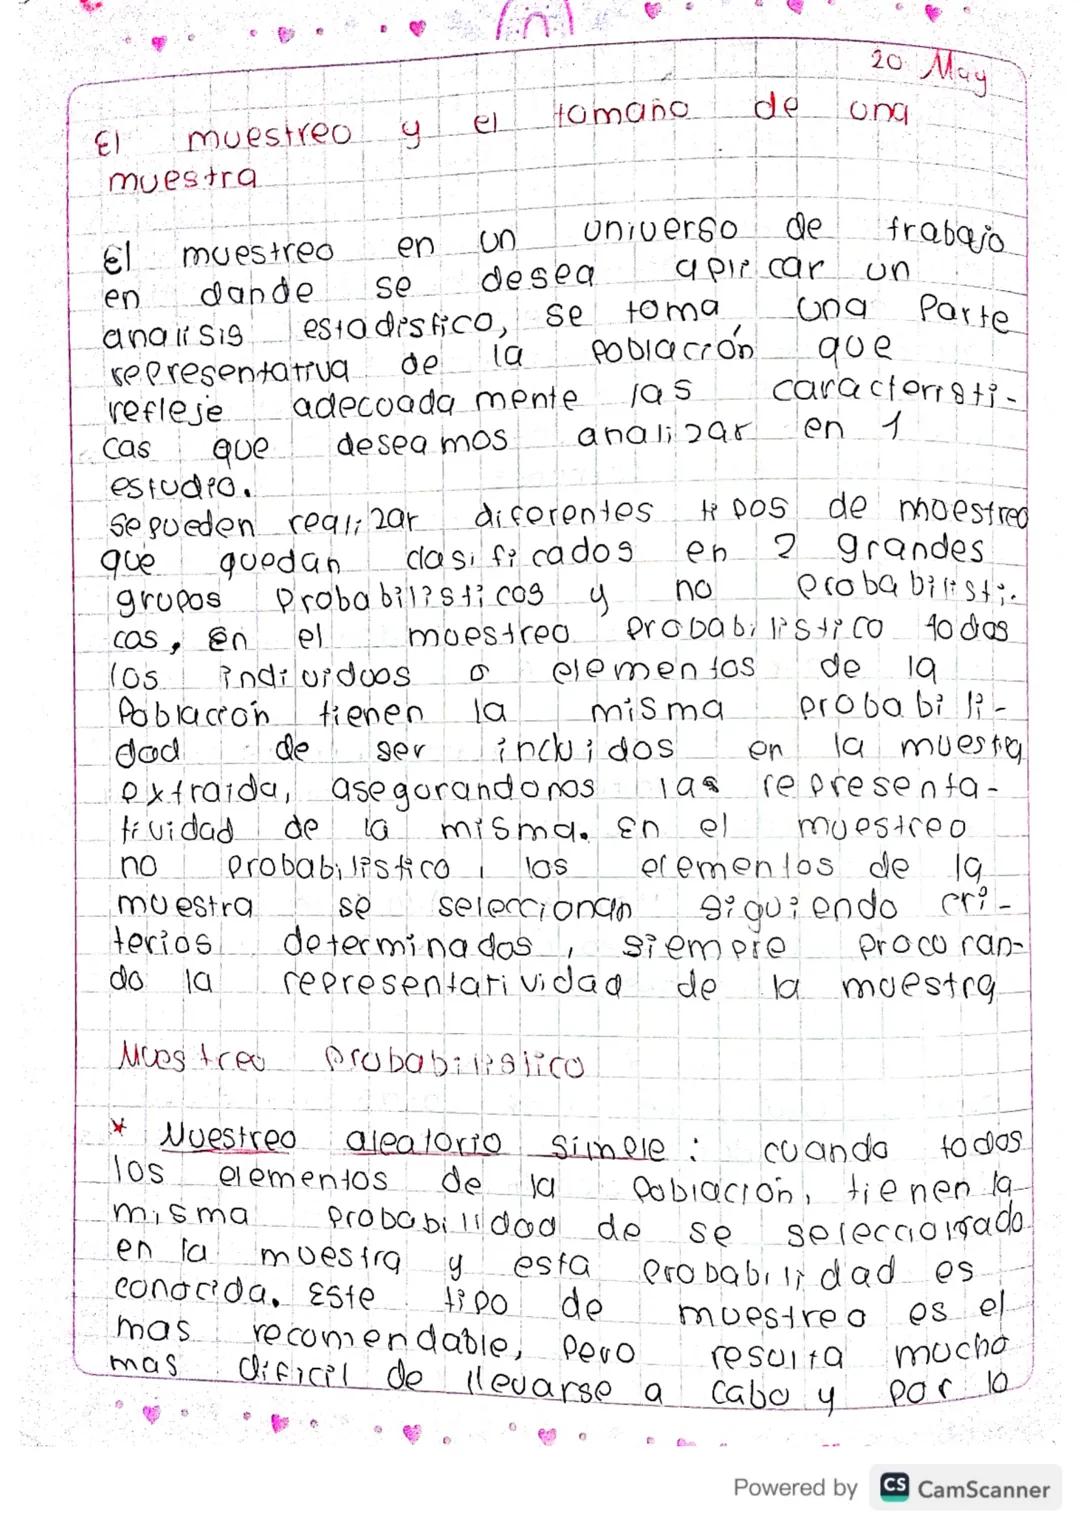 20 May
El muestreo y el tamaño de una
muestra
El muestreo en un universo de trabajo
en dande se desea aplicar un
analisis estadistico, se toma una Parte
representativa de la Población que
refleje adecuadamente las caracteristi-
cas que deseamos analizar en 1
estudio.
Se pueden realizar diferentes tipos de muestreo
que quedan clasificados en 2 grandes
grupos Probabilisticos y no probabilisti-
cos, En el muestreo probabilistico todos
los individuos o elementos de la
Población tienen la misma probabili-
dad de ser incluidos en la muestra
extraida, asegurandonos las representa-
tividad de la misma. En el muestreo
no probabilistico, los elementos de la
muestra se seleccionan siguiendo cri-
terios determinados, siempre procuran-
do la representatividad de la muestra
Muestreo probabilistico
* Muestreo aleatorio simple: cuando todos
los elementos de la población, tienen la
misma probabilidad de se seleccionado
en la muestra y esta probabilidad es
conocida. Este tipo de muestreo es el
mas recomendable, pero resulta mucho
mas dificil de llevarse a cabo y por lo
Powered by CS CamScanner